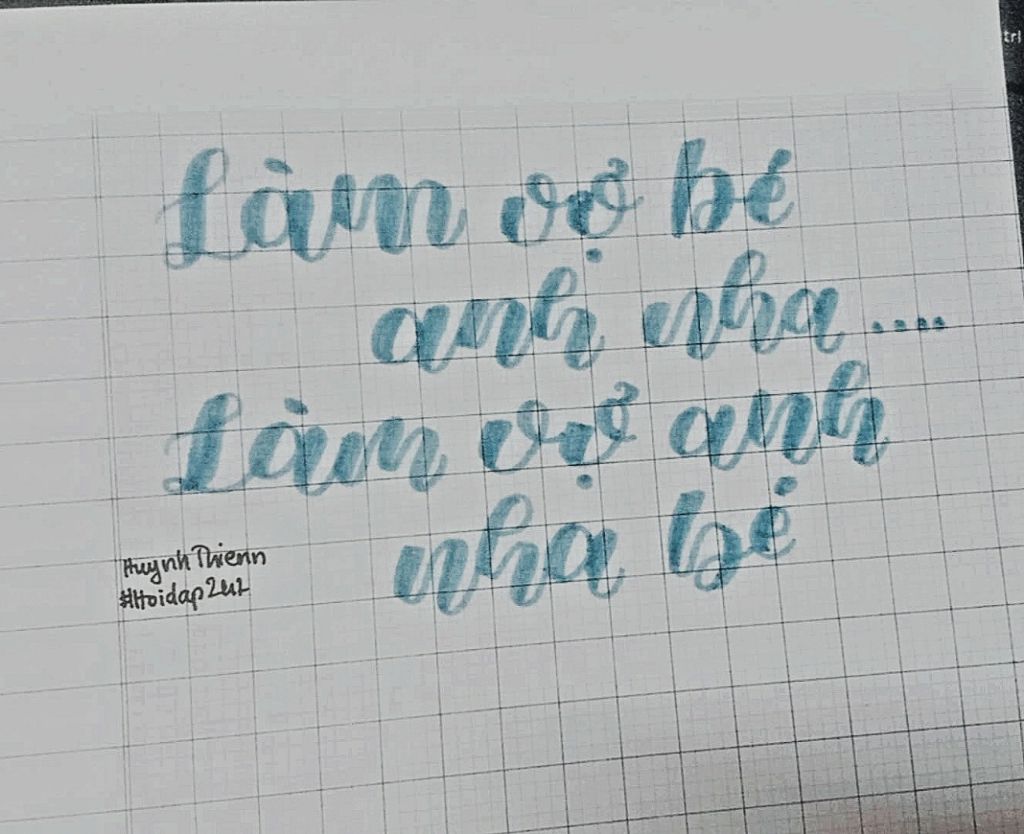 Làm vợ bé
anh nha....
Làm vợ anh
nha bé
HuynhThienn
#Hoidap247
tri